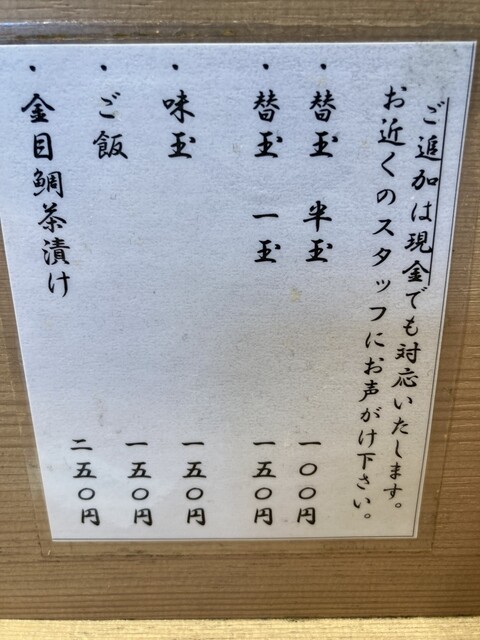 ご追加は現金でも対応いたします。
お近くのスタッフにお声がけ下さい。
・替玉 半玉 一〇〇円
・替玉 一玉 一五〇円
・味玉 一五〇円
・ご飯 一五〇円
・金目鯛茶漬け 二五〇円